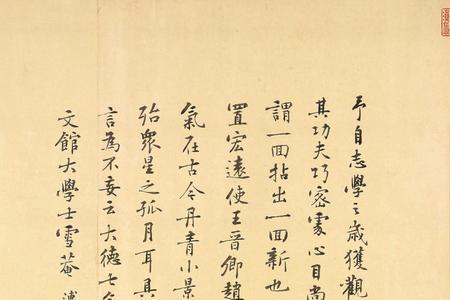 予自志學之歲獲觀
其功夫巧密處心目尚
謂一面拈出一面新也
置宏遠使王晉卿趙
氣在古今丹青小景
殆眾星之孤月耳具
言為不妄云大德七年
文館大學士雪菴